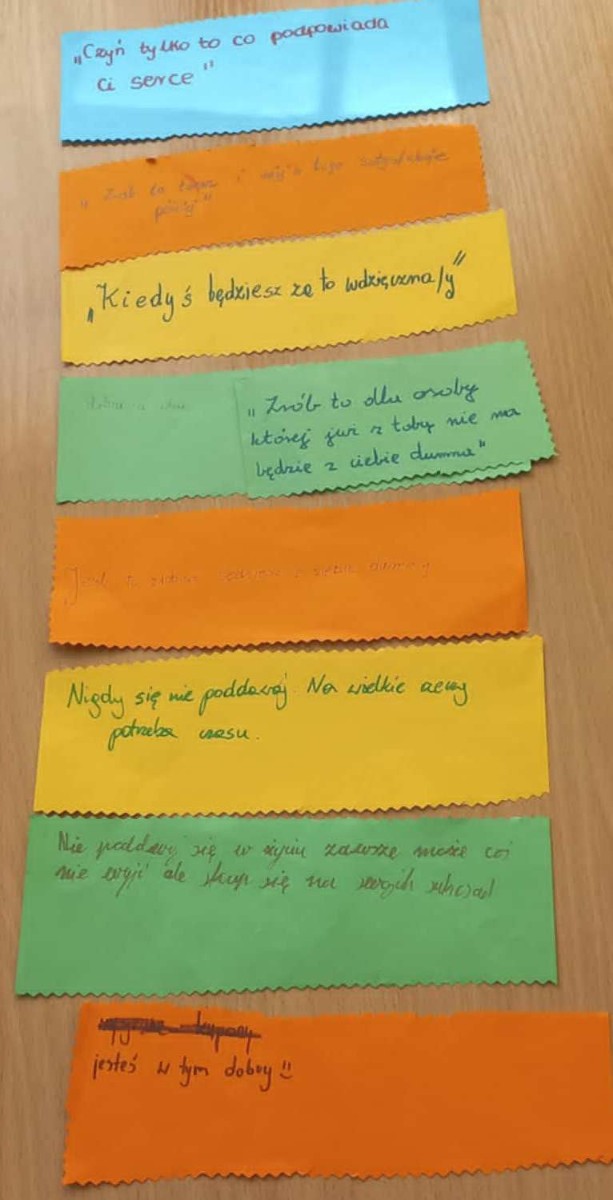 „Czyń tylko to co podpowiada
ci serce"
„Zrób to teraz i
później"
„Kiedyś będziesz za to wdzięczna/y"
„Zrób to dla osoby
której już z tobą nie ma
będzie z ciebie dumna"
z siebie dumny
Nigdy się nie poddawaj. Na wielkie rzeczy
potrzeba czasu.
Nie poddawaj się w życiu zawsze może coś
nie wyjść ale skup się na swoich
jesteś w tym dobry!!